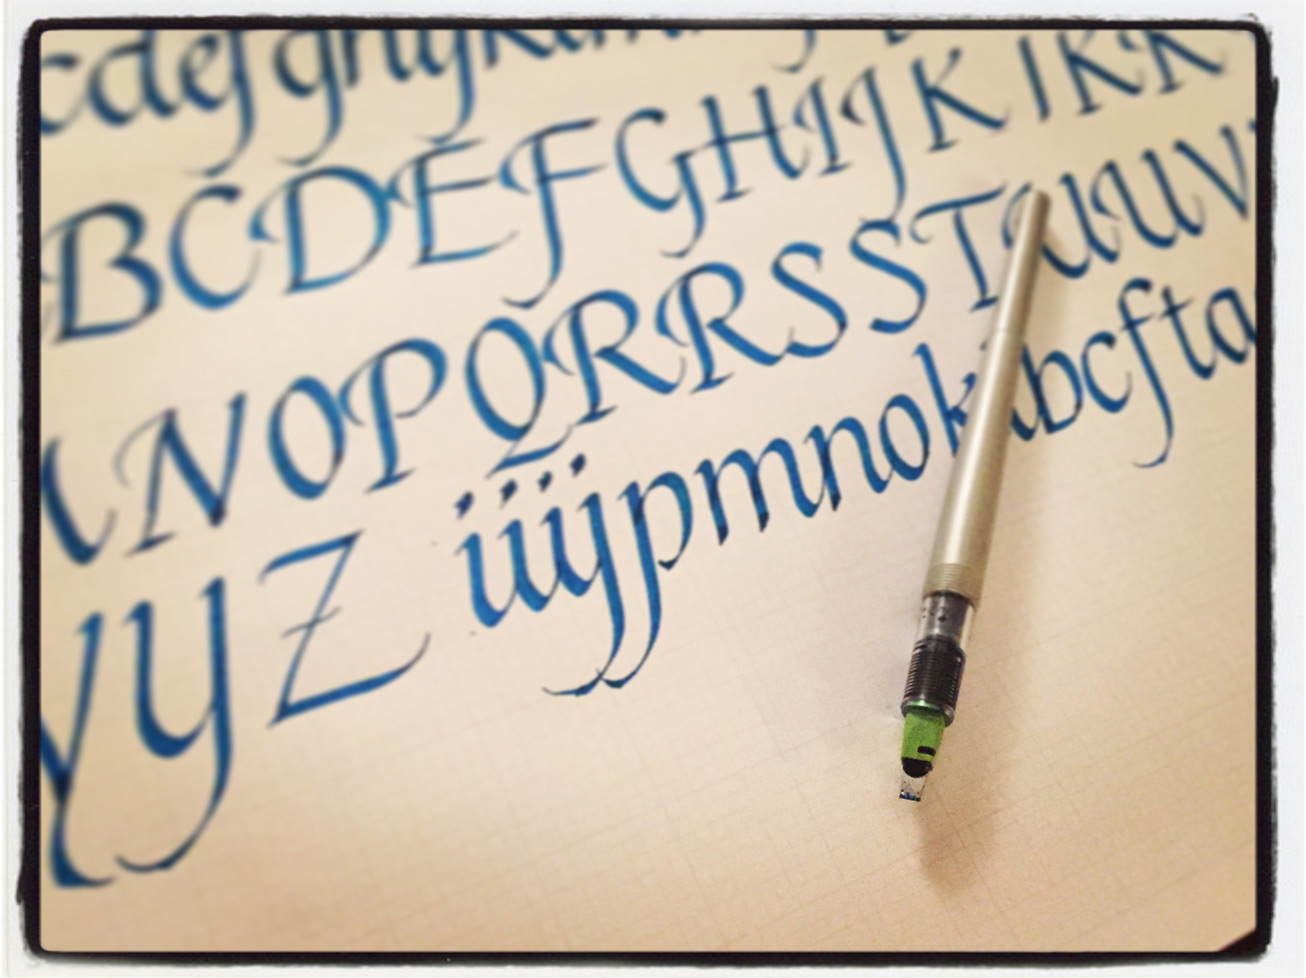 cdefghijklm
BCDEFGHIJK IKK
NOPQRRSSTUUV
YYZ üÿpmnok bcfta